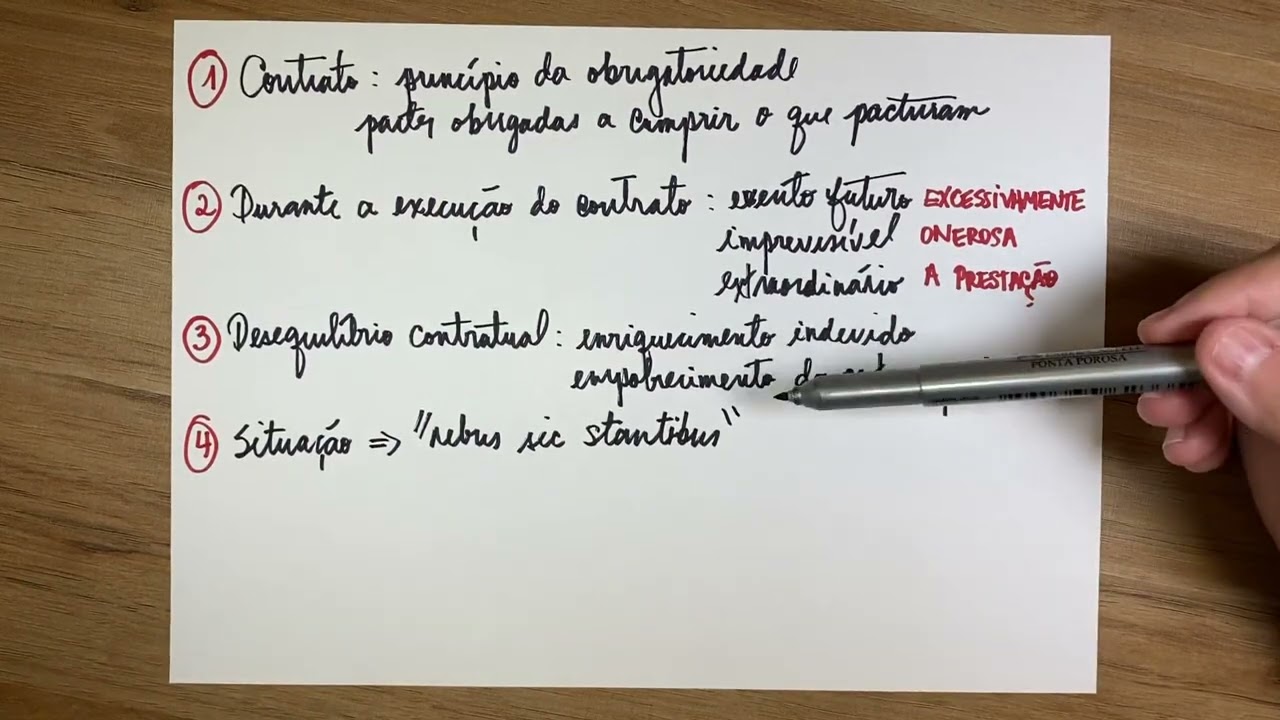 1 Contrato : princípio da obrigatoriedade
partes obrigadas a cumprir o que pacturam
2 Durante a execução do contrato : evento futuro EXCESSIVAMENTE
imprevisível ONEROSA
extraordinário A PRESTAÇÃO
3 Desequilíbrio contratual : enriquecimento indevido
empobrecimento
4 Situação => "rebus sic stantibus"
PONTA POROSA